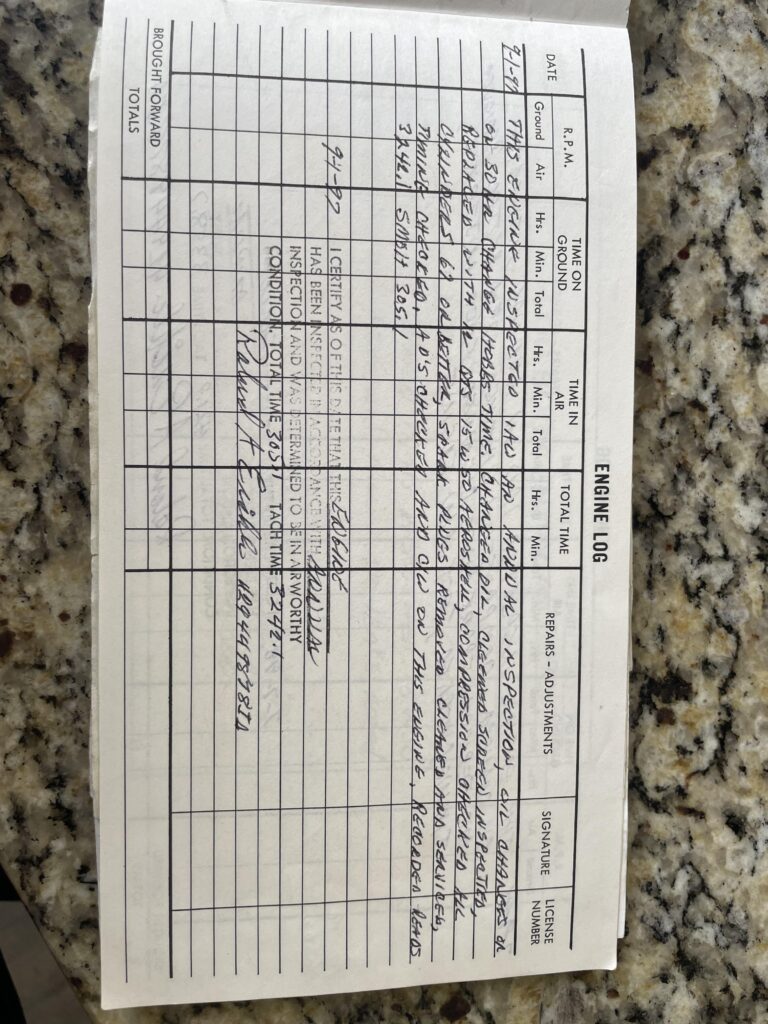 ENGINE LOG
DATE R.P.M. TIME ON GROUND TIME IN AIR TOTAL TIME REPAIRS - ADJUSTMENTS SIGNATURE LICENSE NUMBER
Ground Air Hrs. Min. Total Hrs. Min. Total Hrs. Min.
9-1-97 THIS ENGINE INSPECTED IAW AN ANNUAL INSPECTION, OIL CHANGES OR
ON 50 HR CHANGE HOBBS TIME, CHANGED OIL, CLEANED SCREEN INSPECTED,
REPLACED WITH 12 QTS 15W50 AEROSHELL, COMPRESSION CHECKED ALL
CYLINDERS 67 OR BETTER, SPARK PLUGS REMOVED CLEANED AND SERVICED,
TIMING CHECKED, AD'S CHECKED AND C/W ON THIS ENGINE, RECORDER READS
3242.1 SMOH 305.1
9-1-97 I CERTIFY AS OF THIS DATE THAT THIS ENGINE
HAS BEEN INSPECTED IN ACCORDANCE WITH ANNUAL
INSPECTION AND WAS DETERMINED TO BE IN AIRWORTHY
CONDITION. TOTAL TIME 305.1 TACH TIME 3242.1
A
BROUGHT FORWARD
TOTALS